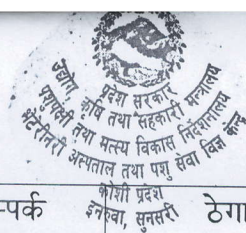 प्रदेश सरकार
उद्योग, कृषि तथा सहकारी मन्त्रालय
पशुपन्छी तथा मत्स्य विकास निर्देशनालय
भेटेरिनरी अस्पताल तथा पशु सेवा विज्ञ केन्द्र
कोशी प्रदेश
इनरुवा, सुनसरी
म्पर्क
ठेगा